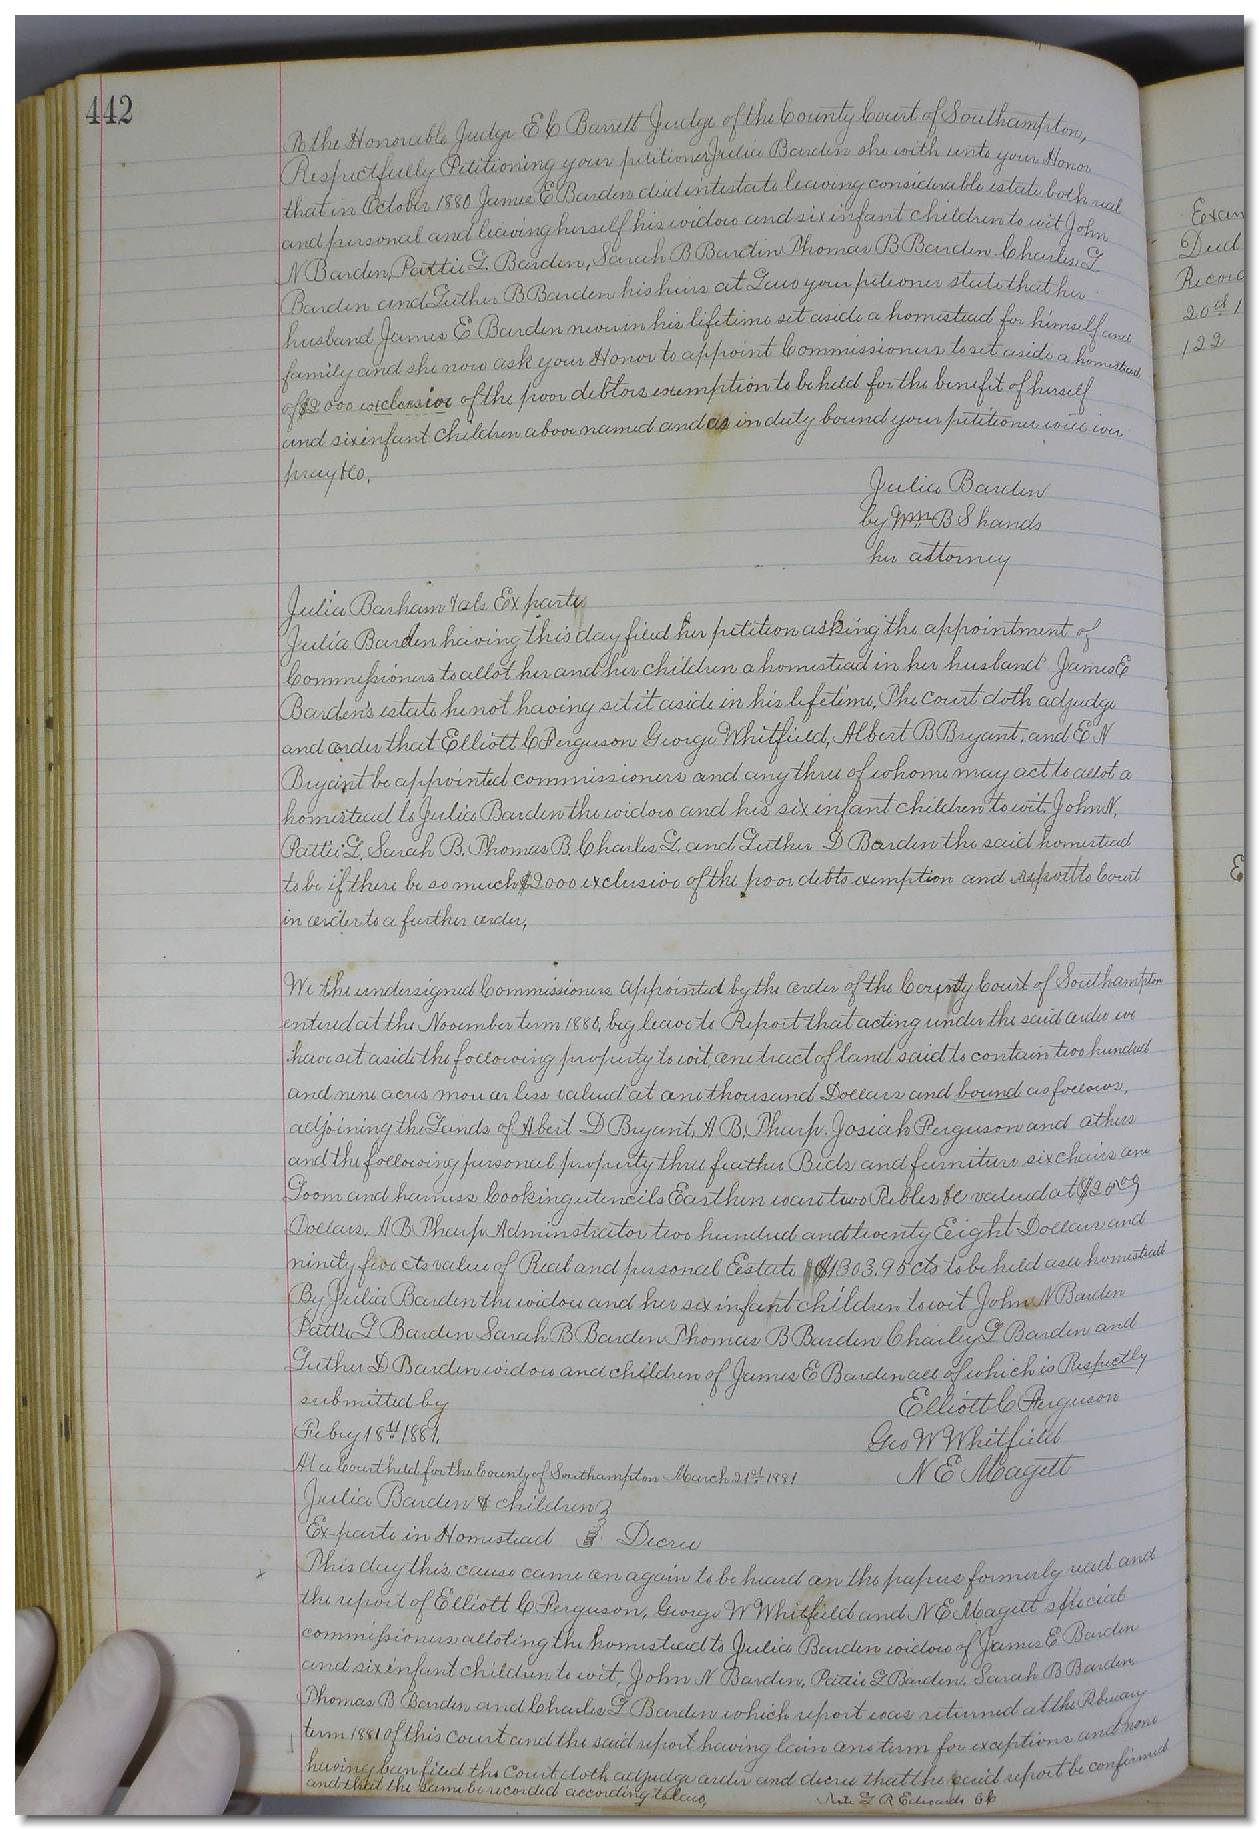 442
To the Honorable Judge E C Barrett Judge of the County Court of Southampton,
Respectfully Petitioning your petitioner Julia Barden she with unto your Honor
that in October 1880 James E Barden died intestate leaving considerable estate both real
and personal and leaving herself his widow and six infant children to wit John
N Barden, Pattie L. Barden, Sarah B Barden Thomas B Barden Charles L
Barden and Luther B Barden his heirs at Law your petioner state that her
husband James E Barden never in his lifetime set aside a homestead for himself and
family and she now ask your Honor to appoint Commissioners to set aside a homestead
of $2000 exclusive of the poor debtors exemption to be held for the benefit of herself
and six infant children above named and as in duty bound your petitioner will ever
pray &c.
Julia Barden
by Wm B Shands
her attorney
Julia Barham & als Ex parte
Julia Barden having this day filed her petition asking the appointment of
Commissioners to allot her and her children a homestead in her husband James E
Barden's estate he not having set it aside in his lifetime. The court doth adjudge
and order that Elliott C Ferguson George Whitfield, Albert B Bryant. and E N
Bryant be appointed commissioners and any three of whome may act to allot a
homestead to Julia Barden the widow and his six infant children to wit. John N.
Pattie L. Sarah B. Thomas B. Charles L. and Luther D Barden the said homestead
to be if there be so much $2000 exclusive of the poor debts exemption and report to Court
in order to a further order.
We the undersigned Commissioners appointed by the order of the County Court of Southampton
entered at the November term 1880, beg leave to Report that acting under the said order we
have set aside the following property to wit, one tract of land said to contain two hundred
and nine acres more or less valued at one thousand Dollars and bound as follows,
adjoining the Lands of Abert D Bryant, A B. Tharp. Josiah Ferguson and others
and the following personal property three feather Beds and furniture six chairs one
Loom and harness Cooking utencils Earthen ware two Tables &c valued at
Dollars. A B Tharp Adminstrator two hundred and twenty Eight Dollars and
ninety five cts value of Real and personal Eestate $1303.95 cts to be held as a homestead
By Julia Barden the widow and her six infant children to wit John N Barden
Pattie L Barden Sarah B Barden Thomas B Barden Charley L Barden and
Luther D Barden widow and children of James E Barden all of which is Respectly
submitted by
Elliott C Ferguson
Feby 18th 1881.
Geo W Whitfield
At a Court held for the County of Southampton March 21st 1881
N E Magett
Julia Barden & children
Ex-parte in Homestead Decree
This day this cause came on again to be heard on the papers formerly read and
the report of Elliott C Ferguson, George W Whitfield and N E Magett special
commissioners alloting the homestead to Julia Barden widow of James E Barden
and six infant children to wit, John N Barden, Pattie L Barden, Sarah B Barden
Thomas B Barden and Charles L Barden which report was returned at the
term 1881 of this court and the said report having lain one term for exceptions and none
having been filed the Court doth adjudge order and decree that the said report be confirmed
and that the same be recorded according to law,
L R Edwards Clk
Exam
Deed
Record
20th 1
122
E